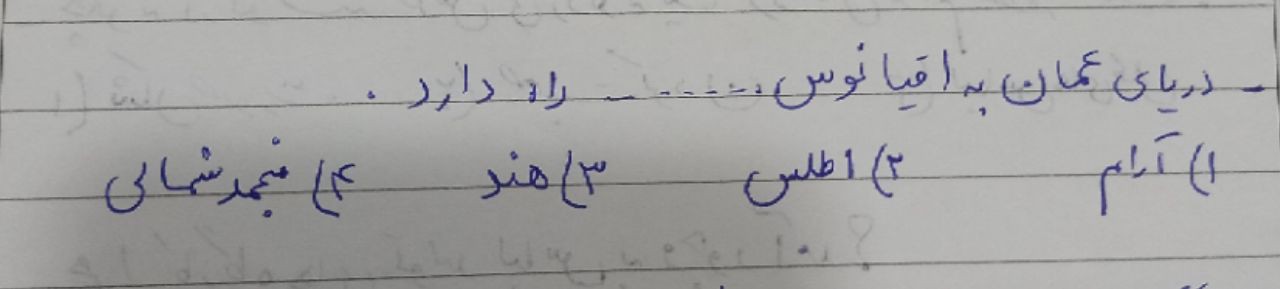 - دریای عمان به اقیانوس ........ راه دارد .
۱) آرام ۲) اطلس ۳) هند ۴) منجمد شمالی